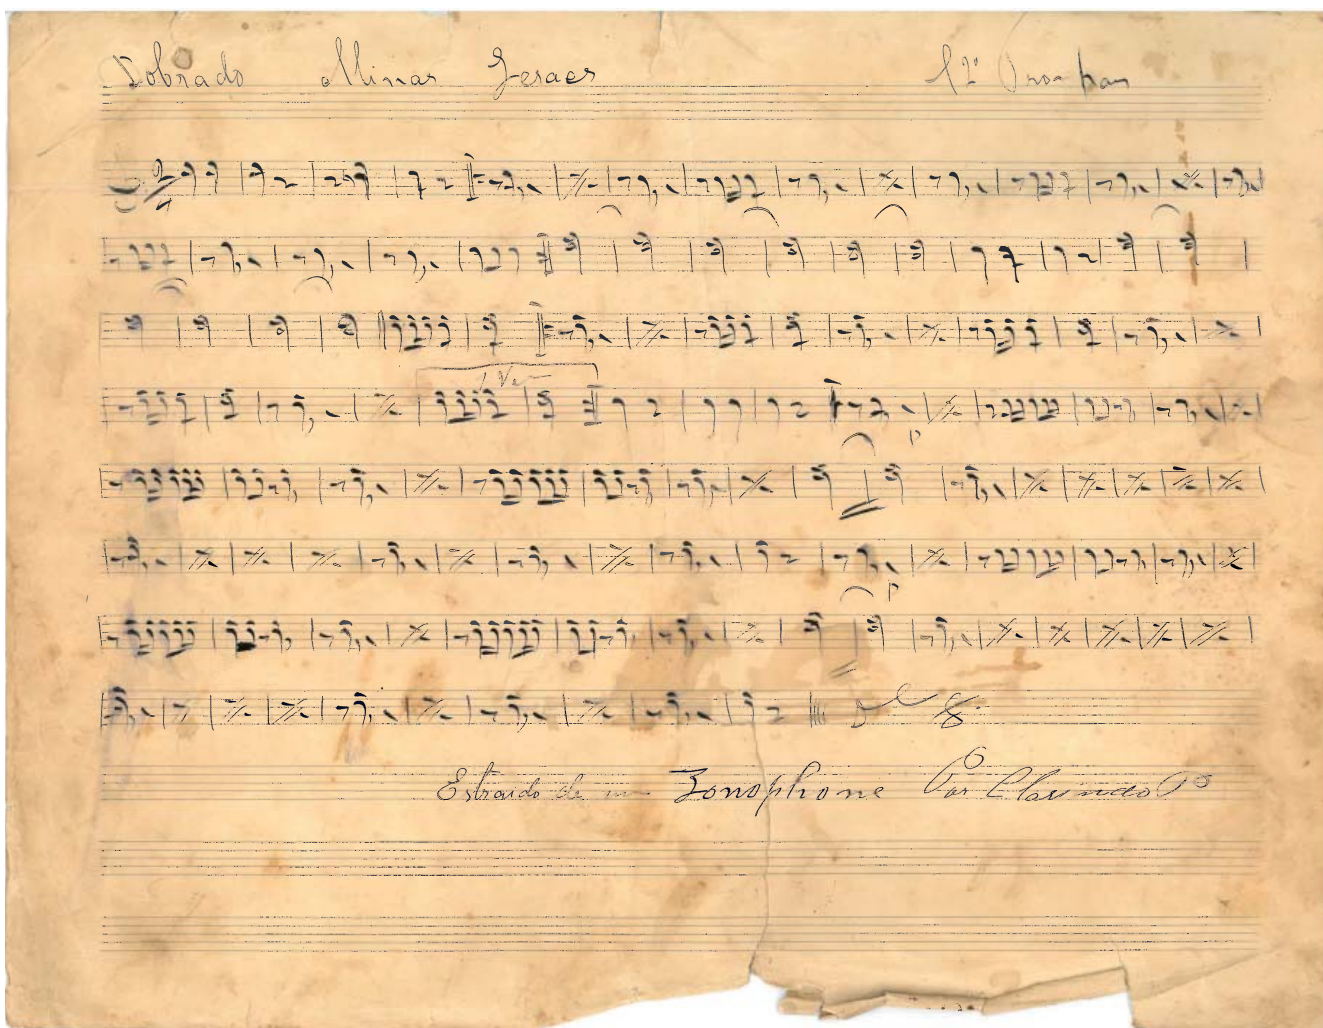 Dobrado Minas Geraes 2º Tromban
1 Vez
p
p
D al
Estraido de um Zonophone Por Clarindo